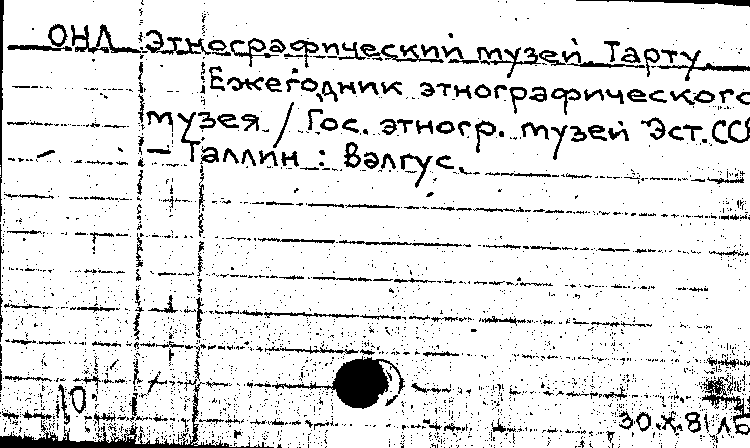 ОНЛ Этнографический музей. Тарту.
Ежегодник этнографического
музея / Гос. этногр. музей Эст.ССР
– Таллин : Валгус.
10
30.X.81 ЛБ